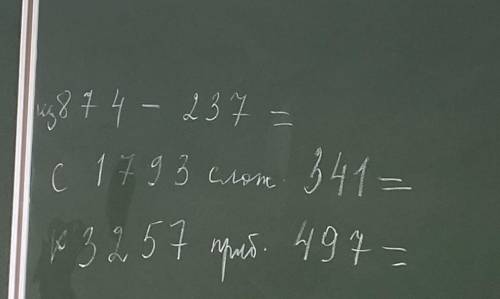 из 874 - 237 =
С 1793 слож. 341 =
К 3257 приб. 497 =